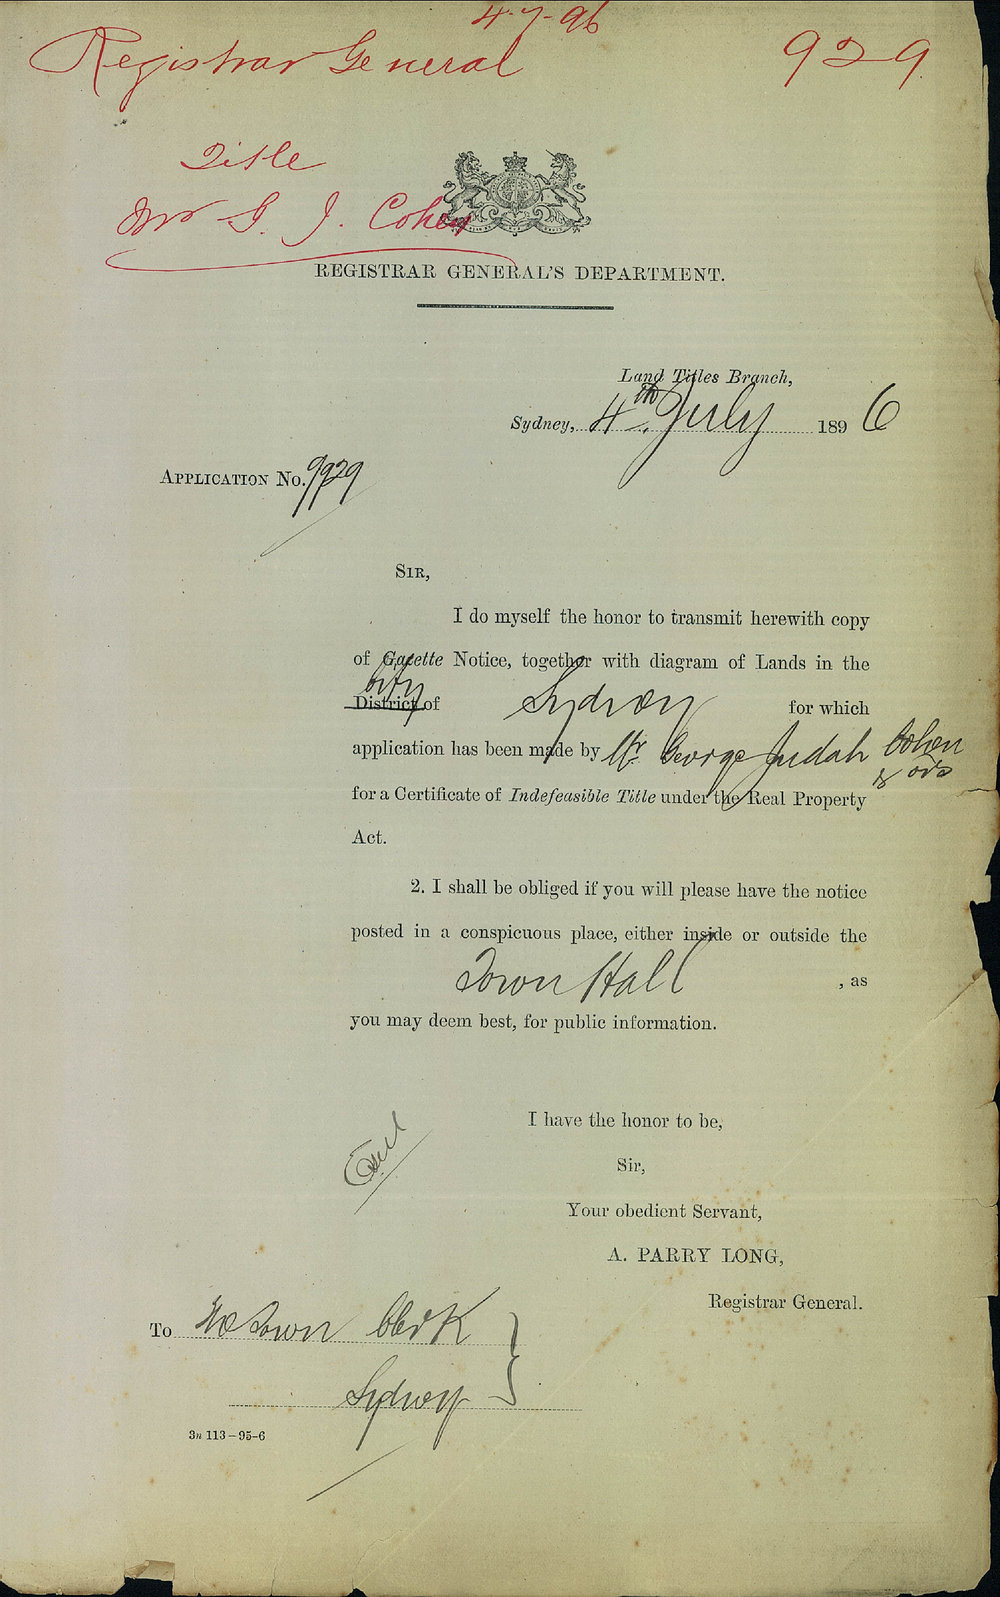 4-7-96
Registrar General 929
Title
Mr G. J. Cohen
REGISTRAR GENERAL'S DEPARTMENT.
Land Titles Branch,
Sydney, 4th July 1896
APPLICATION No. 9929
SIR,
I do myself the honor to transmit herewith copy
of Gazette Notice, together with diagram of Lands in the
City
District of Sydney for which
application has been made by Mr. George Judah Cohen
& ors
for a Certificate of Indefeasible Title under the Real Property
Act.
2. I shall be obliged if you will please have the notice
posted in a conspicuous place, either inside or outside the
Town Hall , as
you may deem best, for public information.
I have the honor to be,
Sir,
Your obedient Servant,
A. PARRY LONG,
Registrar General.
To The Town Clerk
Sydney
3n 113-95-6